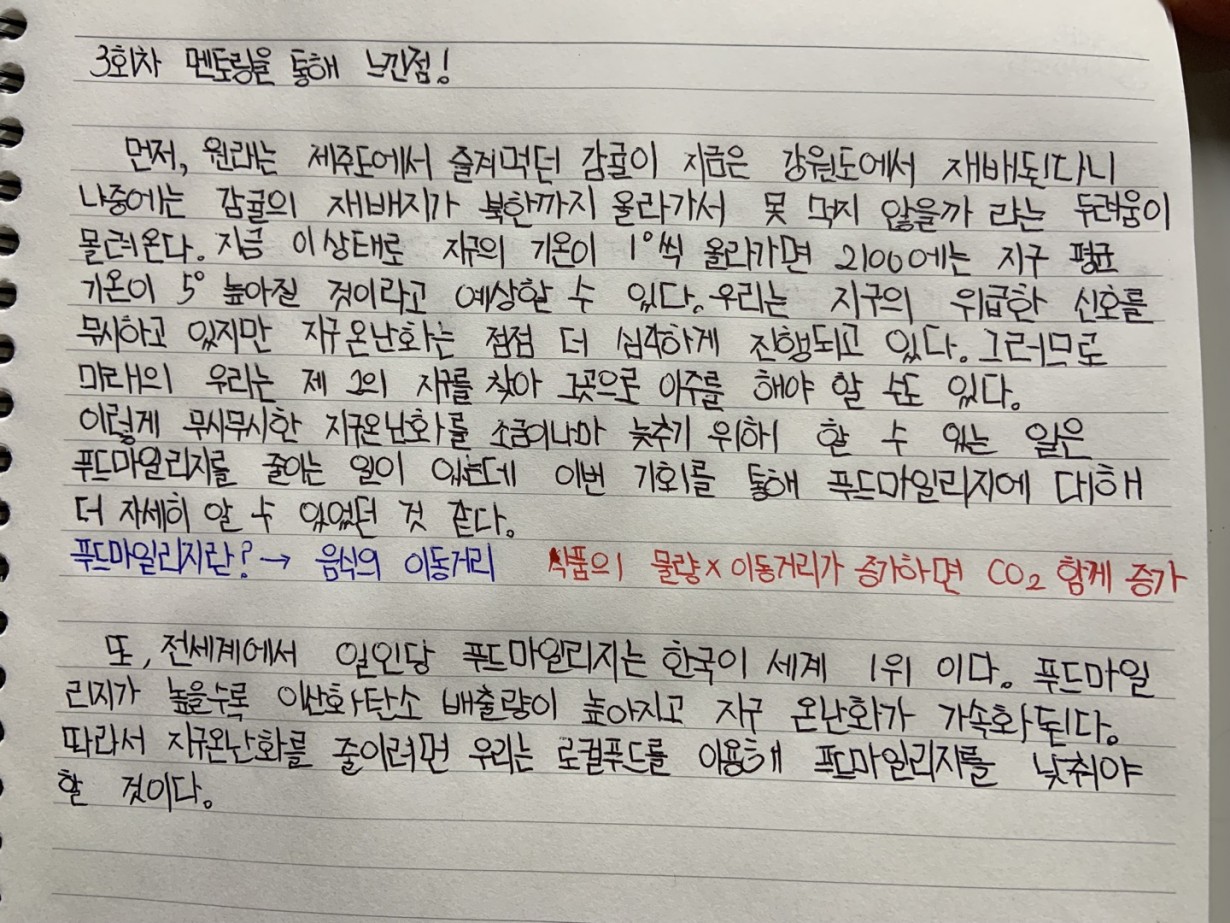 3회차 멘토링을 통해 느낀점!
먼저, 원래는 제주도에서 즐겨먹던 감귤이 지금은 강원도에서 재배된다니
나중에는 감귤의 재배지가 북한까지 올라가서 못 먹지 않을까 라는 두려움이
몰려온다. 지금 이상태로 지구의 기온이 1°씩 올라가면 2100에는 지구 평균
기온이 5° 높아질 것이라고 예상할 수 있다. 우리는 지구의 위급한 신호를
무시하고 있지만 지구온난화는 점점 더 심각하게 진행되고 있다. 그러므로
미래의 우리는 제 2의 지구를 찾아 그곳으로 이주를 해야 할 수도 있다.
이렇게 무시무시한 지구온난화를 조금이나마 늦추기 위해 할 수 있는 일은
푸드마일리지를 줄이는 일이 있는데 이번 기회를 통해 푸드마일리지에 대해
더 자세히 알 수 있었던 것 같다.
푸드마일리지란? → 음식의 이동거리 식품의 물량 x 이동거리가 증가하면 CO₂ 함께 증가
또, 전세계에서 일인당 푸드마일리지는 한국이 세계 1위 이다. 푸드마일
리지가 높을수록 이산화탄소 배출량이 높아지고 지구 온난화가 가속화된다.
따라서 지구온난화를 줄이려면 우리는 로컬푸드를 이용해 푸드마일리지를 낮춰야
할 것이다.